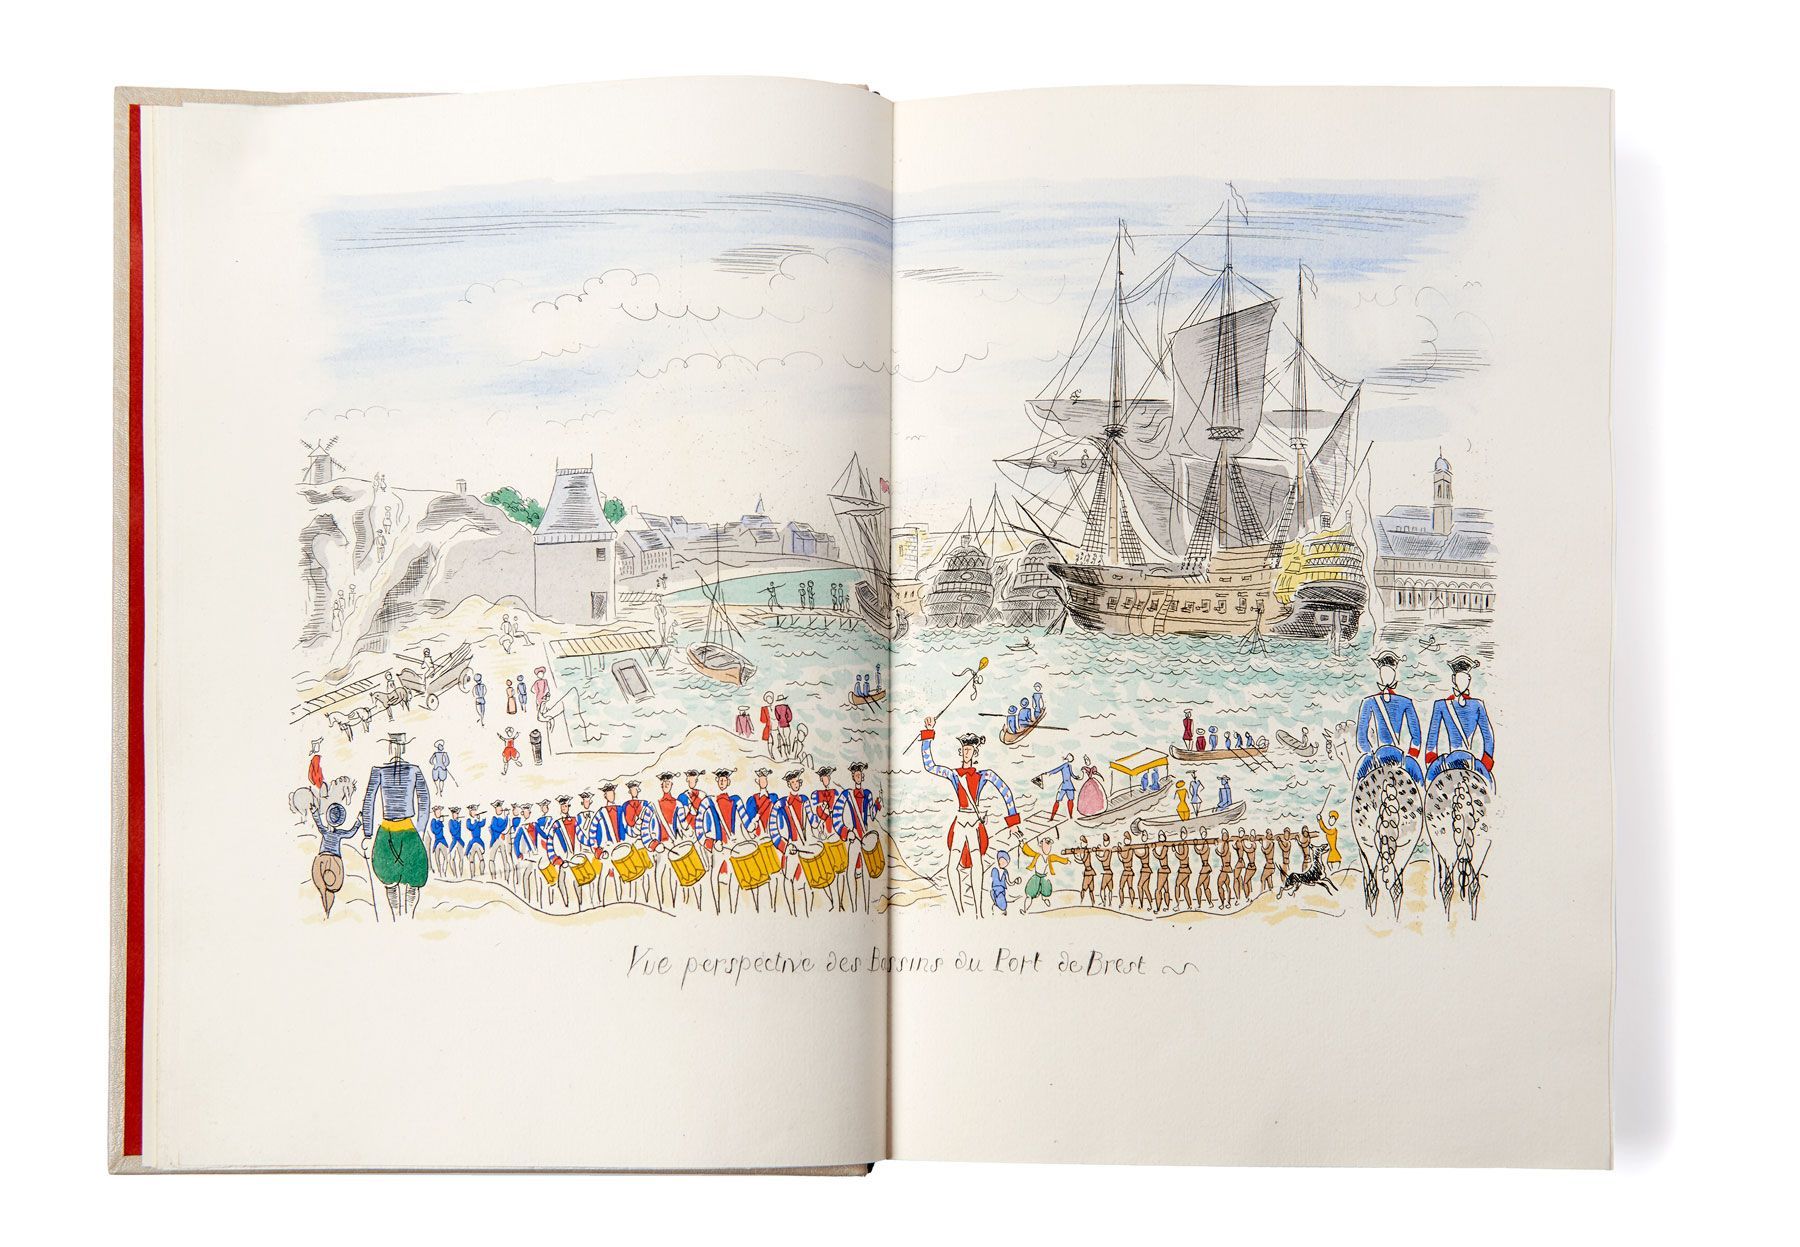 Vue perspective des Bassins du Port de Brest